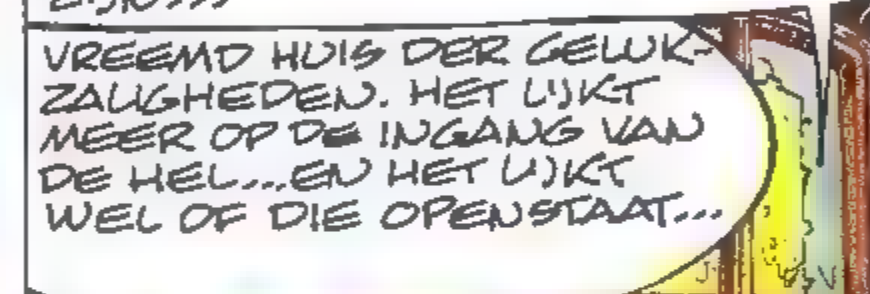 VREEMD HUIS DER GELUK-
ZALIGHEDEN. HET LIJKT
MEER OP DE INGANG VAN
DE HEL...EN HET LIJKT
WEL OF DIE OPENSTAAT...